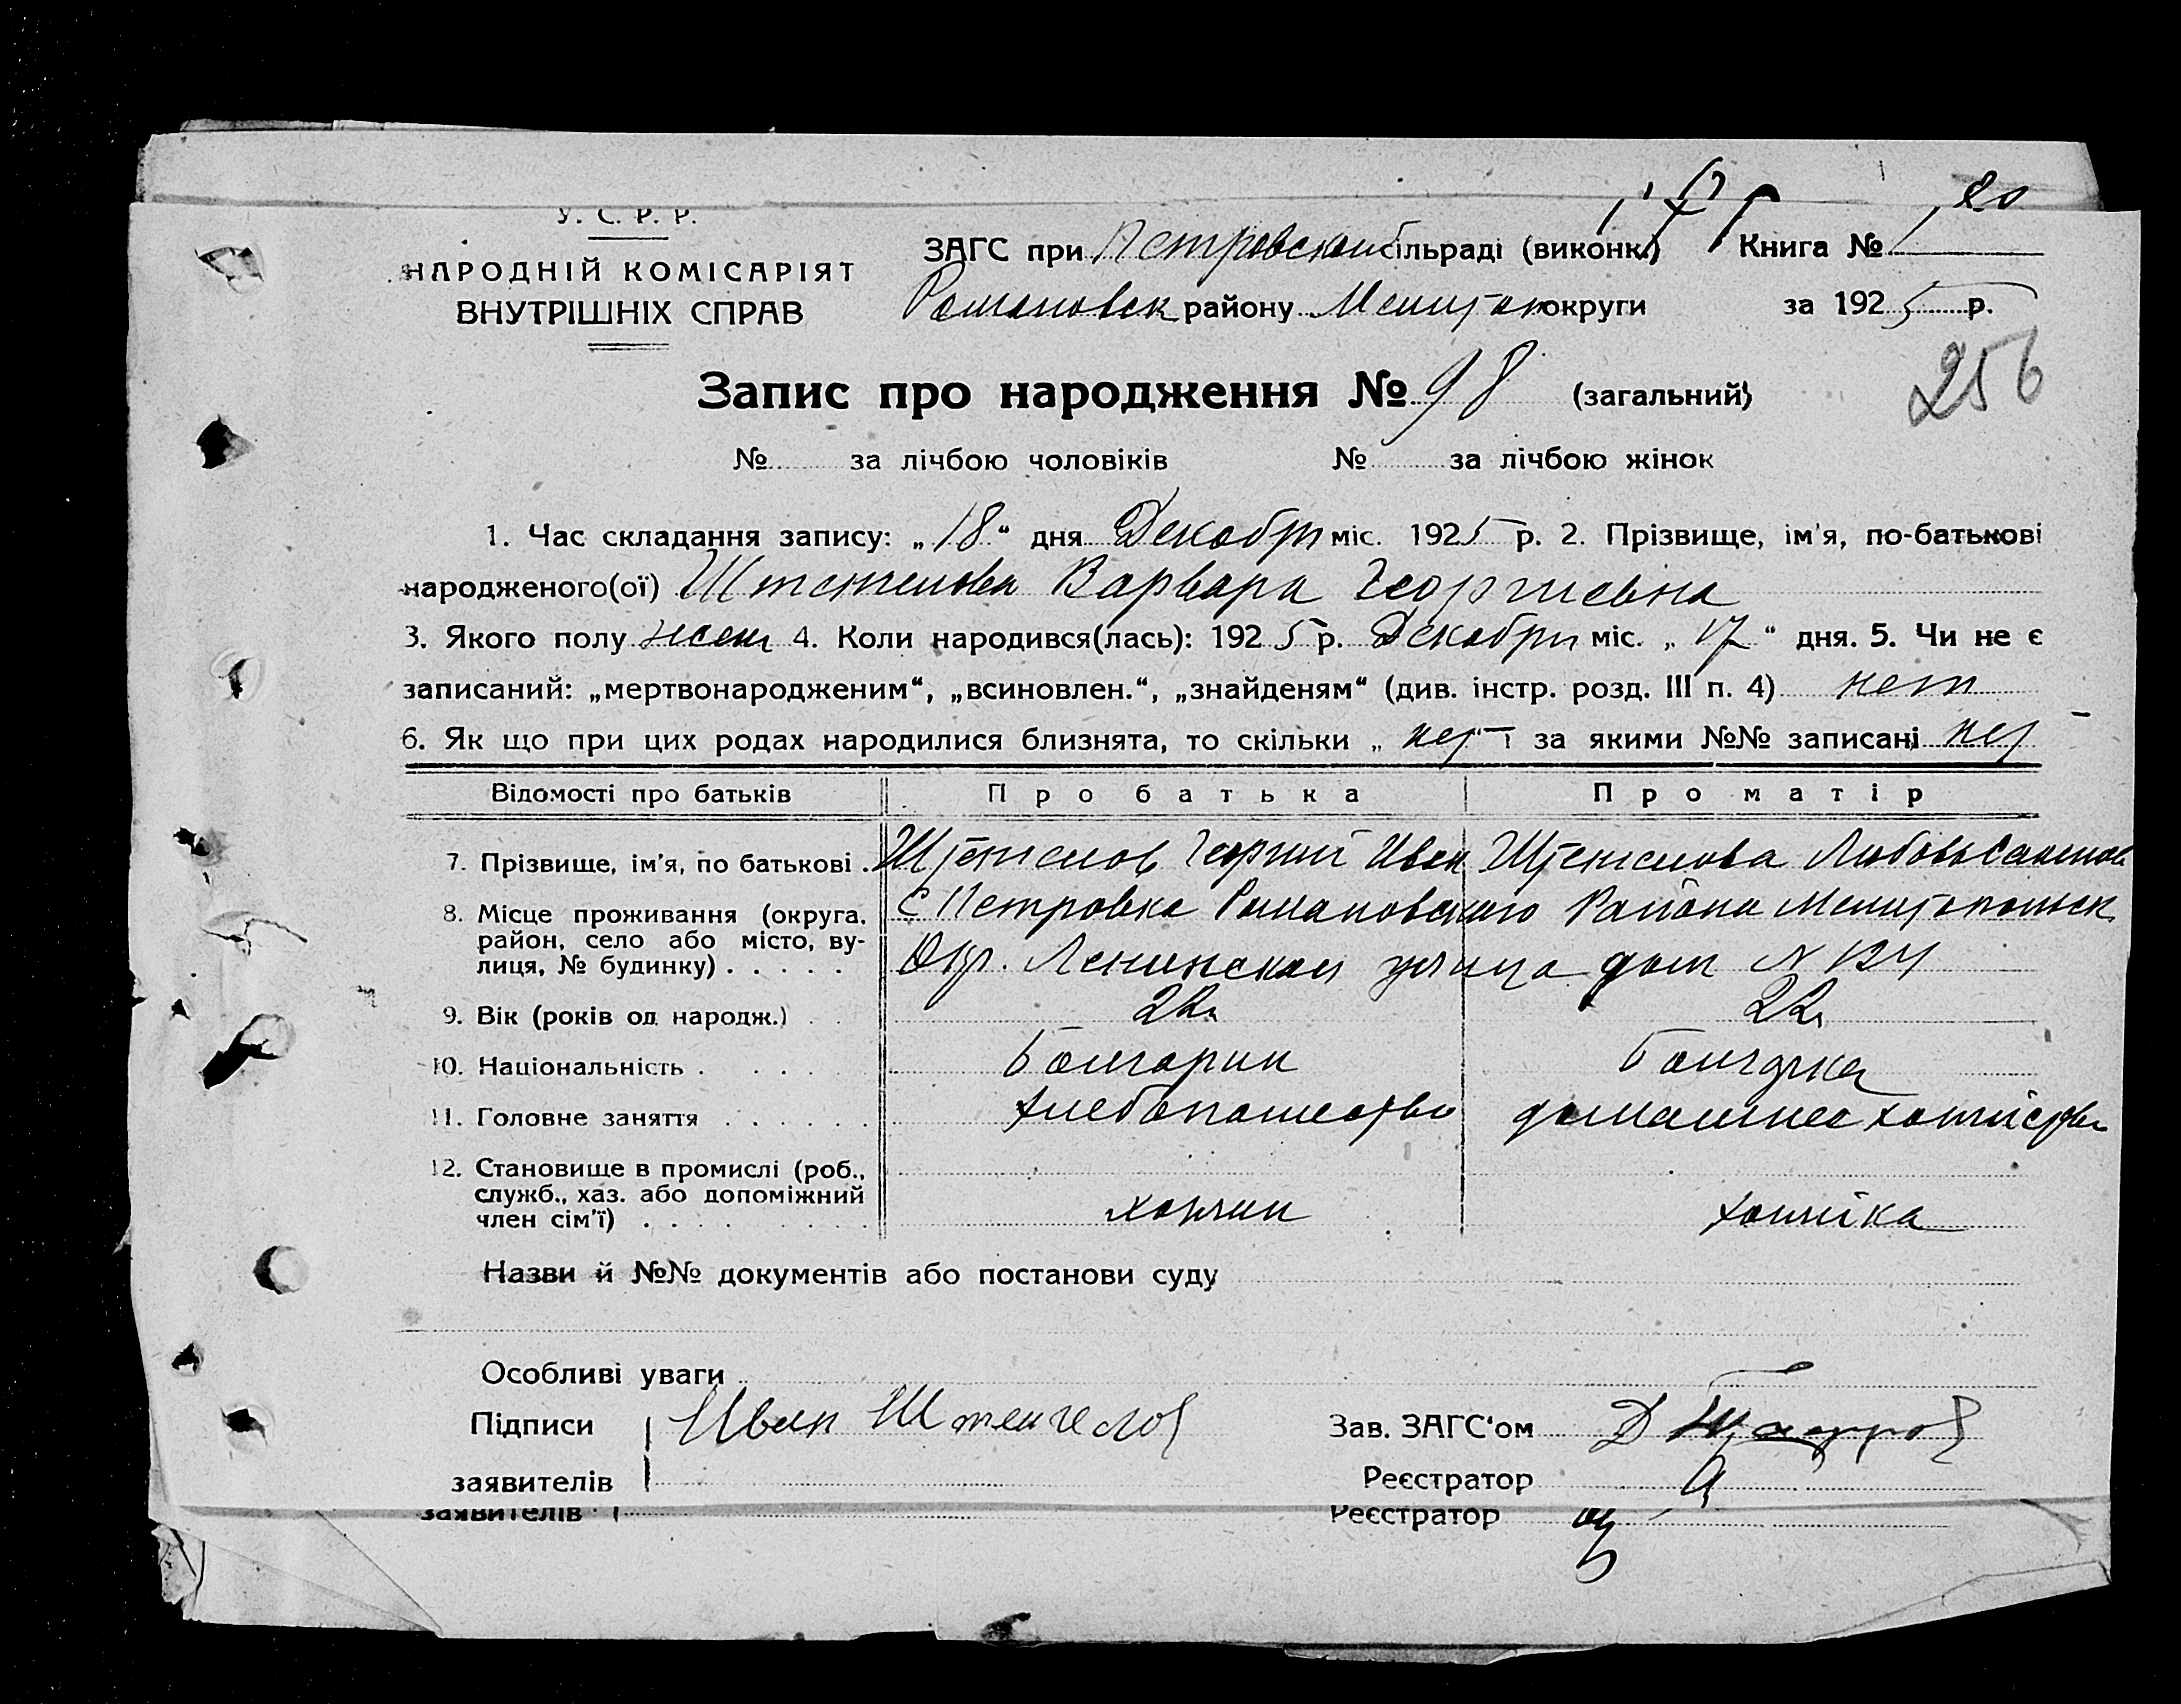 У. С. Р. Р.
НАРОДНІЙ КОМІСАРІЯТ
ВНУТРІШНІХ СПРАВ
ЗАГС при Петровской сільраді (виконк.) Книга № 1
Романовск району Мелитоп округи за 1925 р.
256
Запис про народження № 98 (загальний)
№ за лічбою чоловіків № за лічбою жінок
1. Час складання запису: „18“ дня Декабря міс. 1925 р. 2. Прізвище, ім'я, по-батькові
народженого(ої) Штенгелова Варвара Георгиевна
3. Якого полу жен 4. Коли народився(лась): 1925 р. Декабря міс. „17“ дня. 5. Чи не є
записаний: „мертвонародженим“, „всиновлен.“, „знайденям“ (див. інстр. розд. III п. 4) нет
6. Як що при цих родах народилися близнята, то скільки „ нет і за якими №№ записані нет
Відомості про батьків Про батька Про матір
7. Прізвище, ім'я, по батькові . Штенгелов Георгий Иван Штенгелова Любовь
8. Місце проживання (округа, район, село або місто, вулиця, № будинку) . . . . . С Петровка Романовского Района Мелитопольск
Окр. Ленинская улица дом № 124
9. Вік (років од народж.) . . 22 22
10. Національність . . . . . Болгарин Болгарка
11. Головне заняття . . . . . . хлебопашество домашнее хозяйство
12. Становище в промислі (роб., служб., хаз. або допоміжний член сім'ї) . . . . . . . . хозяин хозяйка
Назви й №№ документів або постанови суду
Особливі уваги
Підписи Иван Штенгелов Зав. ЗАГС'ом Д
заявителів Реєстратор
заявителів Реєстратор